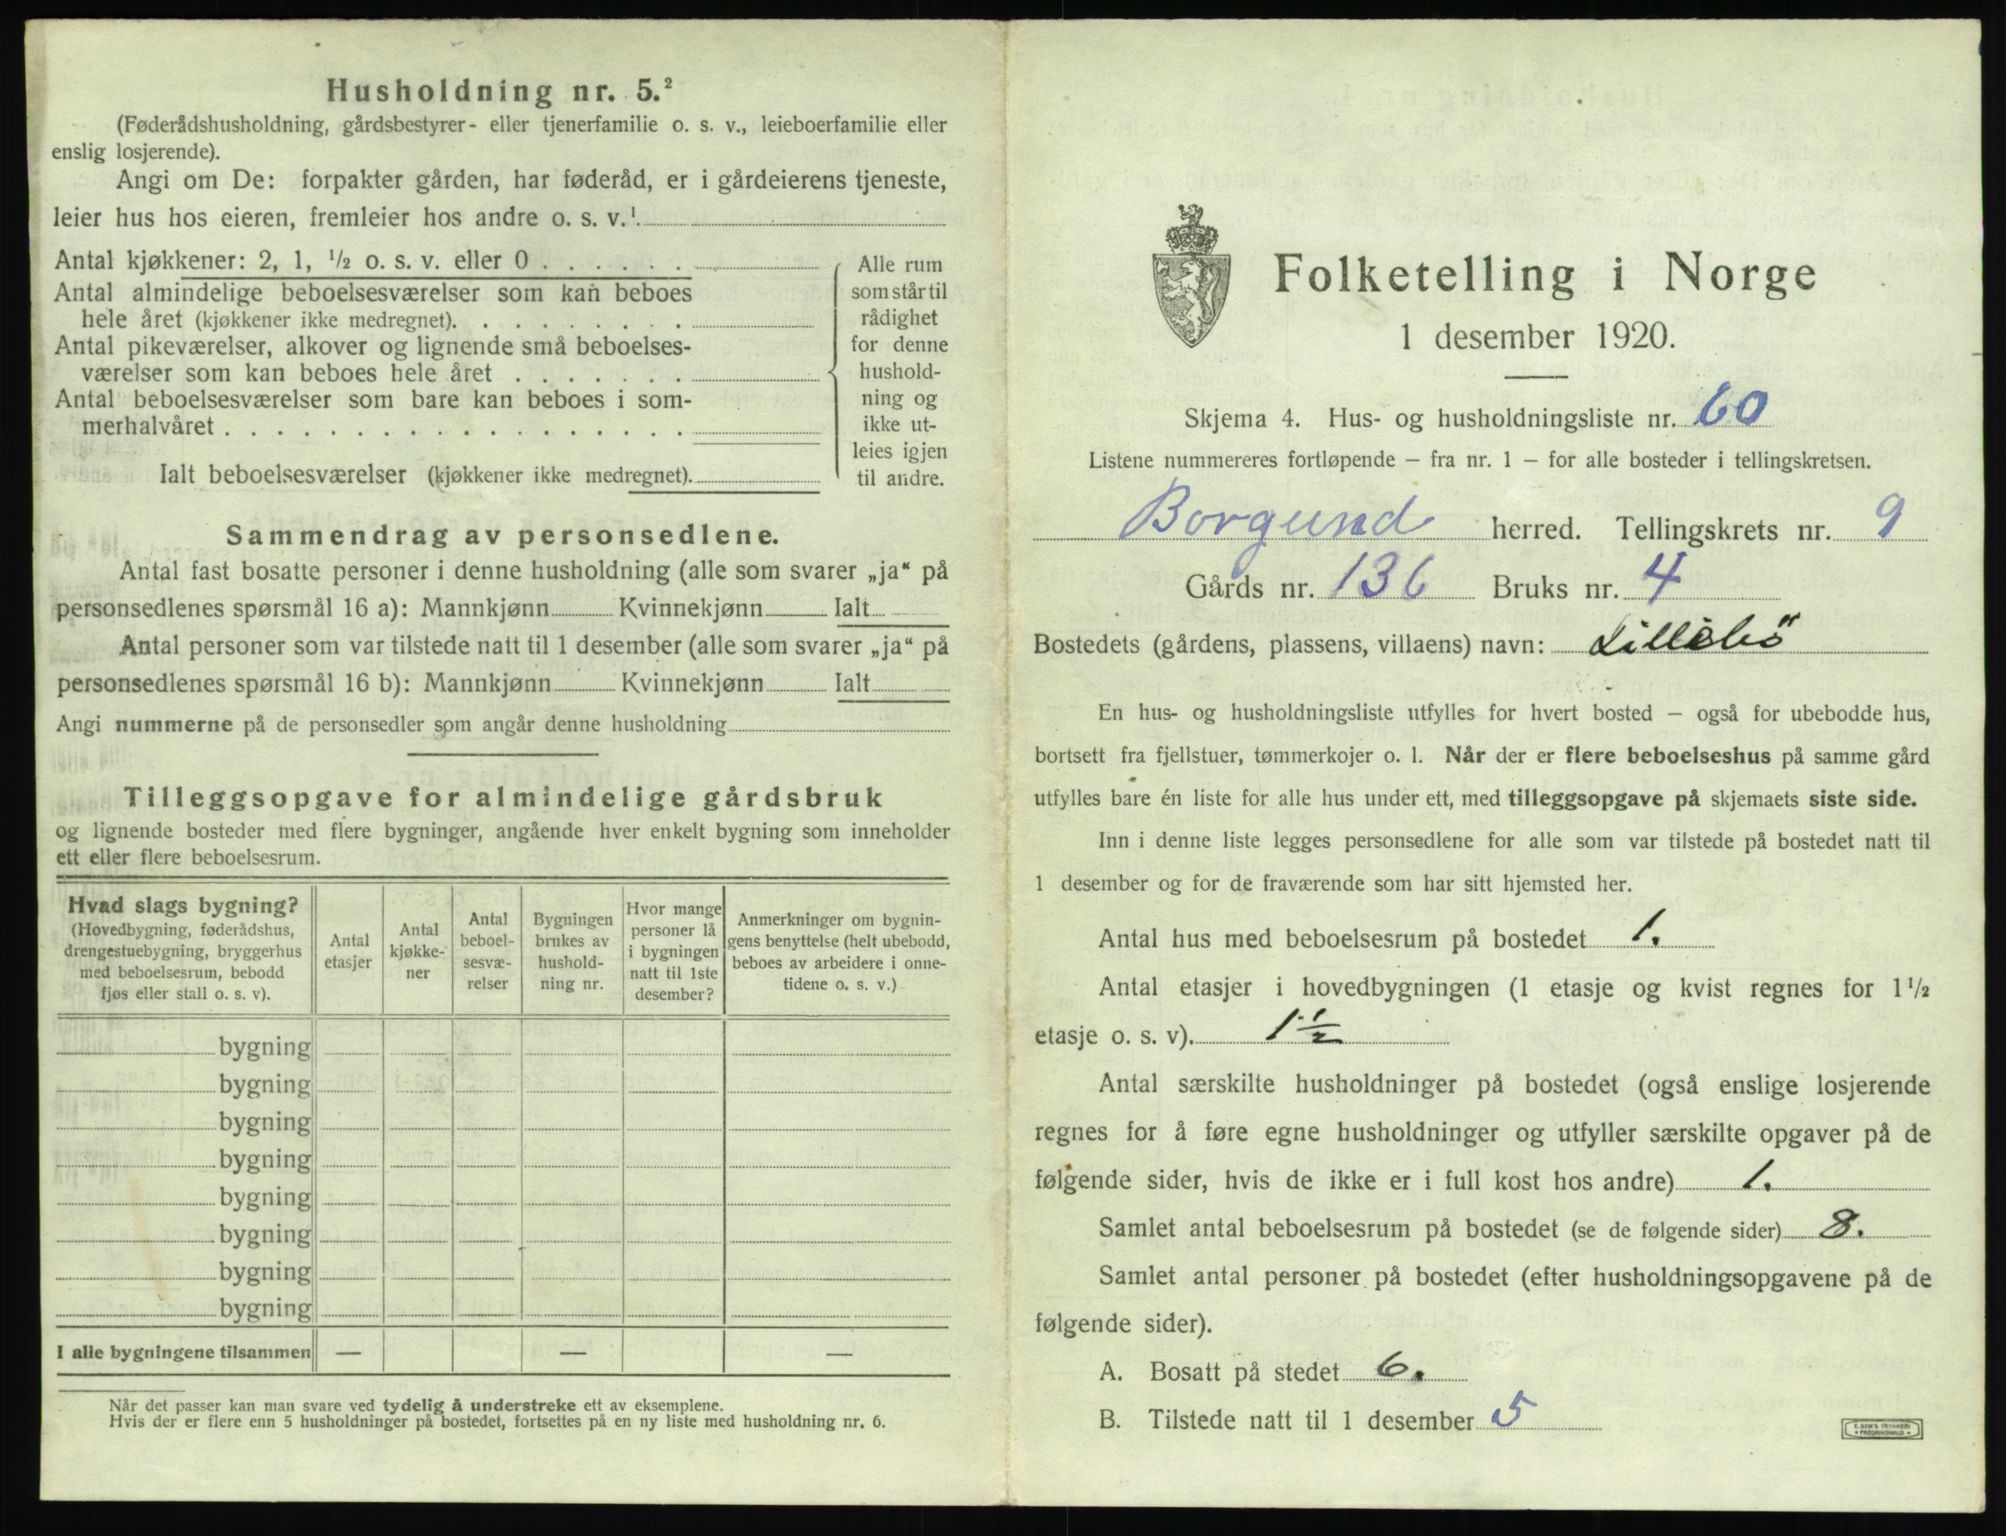 Husholdning nr. 5.²
(Føderådshusholdning, gårdsbestyrer- eller tjenerfamilie o. s. v., leieboerfamilie eller
enslig losjerende).
Angi om De: forpakter gården, har føderåd, er i gårdeierens tjeneste,
leier hus hos eieren, fremleier hos andre o. s. v.¹
Antal kjøkkener: 2, 1, ½ o. s. v. eller 0 . . . . . .
Antal almindelige beboelsesværelser som kan beboes
hele året (kjøkkener ikke medregnet). . . . . . . . .
Antal pikeværelser, alkover og lignende små beboelses-
værelser som kan beboes hele året . . . . . . .
Antal beboelsesværelser som bare kan beboes i som-
merhalvåret . . . . . . . . . . . . . . . . . .
Ialt beboelsesværelser (kjøkkener ikke medregnet).
Alle rum
som står til
rådighet
for denne
hushold-
ning og
ikke ut-
leies igjen
til andre.
Sammendrag av personsedlene.
Antal fast bosatte personer i denne husholdning (alle som svarer „ja“ på
personsedlenes spørsmål 16 a): Mannkjønn Kvinnekjønn Ialt
Antal personer som var tilstede natt til 1 desember (alle som svarer „ja“ på
personsedlenes spørsmål 16 b): Mannkjønn Kvinnekjønn Ialt
Angi nummerne på de personsedler som angår denne husholdning
Tilleggsopgave for almindelige gårdsbruk
og lignende bosteder med flere bygninger, angående hver enkelt bygning som inneholder
ett eller flere beboelsesrum.
Hvad slags bygning?
(Hovedbygning, føderådshus,
drengestuebygning, bryggerhus
med beboelsesrum, bebodd
fjøs eller stall o. s. v).
Antal
etasjer
Antal
kjøkke-
ner
Antal
beboel-
sesvæ-
relser
Bygningen
brukes av
hushold-
ning nr.
Hvor mange
personer lå
i bygningen
natt til 1ste
desember?
Anmerkninger om bygnin-
gens benyttelse (helt ubebodd,
beboes av arbeidere i onne-
tidene o. s. v.)
bygning
bygning
bygning
bygning
bygning
bygning
bygning
bygning
I alle bygningene tilsammen — — —
Når det passer kan man svare ved tydelig å understreke ett av eksemplene.
Hvis der er flere enn 5 husholdninger på bostedet, fortsettes på en ny liste med husholdning nr. 6.
Folketelling i Norge
1 desember 1920.
Skjema 4. Hus- og husholdningsliste nr. 60
Listene nummereres fortløpende — fra nr. 1 — for alle bosteder i tellingskretsen.
Borgund herred. Tellingskrets nr. 9
Gårds nr. 136 Bruks nr. 4
Bostedets (gårdens, plassens, villaens) navn: Lillebö
En hus- og husholdningsliste utfylles for hvert bosted — også for ubebodde hus,
bortsett fra fjellstuer, tømmerkojer o. l. Når der er flere beboelseshus på samme gård
utfylles bare én liste for alle hus under ett, med tilleggsopgave på skjemaets siste side.
Inn i denne liste legges personsedlene for alle som var tilstede på bostedet natt til
1 desember og for de fraværende som har sitt hjemsted her.
Antal hus med beboelsesrum på bostedet 1.
Antal etasjer i hovedbygningen (1 etasje og kvist regnes for 1½
etasje o. s. v). 1½
Antal særskilte husholdninger på bostedet (også enslige losjerende
regnes for å føre egne husholdninger og utfyller særskilte opgaver på de
følgende sider, hvis de ikke er i full kost hos andre) 1.
Samlet antal beboelsesrum på bostedet (se de følgende sider) 8.
Samlet antal personer på bostedet (efter husholdningsopgavene på de
følgende sider).
A. Bosatt på stedet 6.
B. Tilstede natt til 1 desember 5